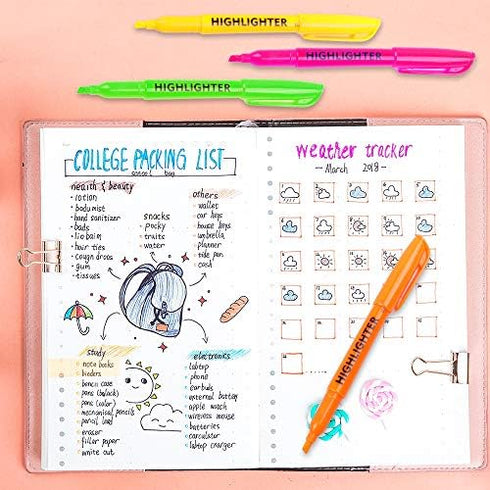 HIGHLIGHTER
HIGHLIGHTER
HIGHLIGHTER
COLLEGE PACKING LIST
school bag
health & beauty
• lotion
• body mist
• hand sanitizer
• pads
• lip balm
• hair ties
• cough drops
• gum
• tissues
snacks
• pocky
• fruits
• water
others
• wallet
• car keys
• house keys
• umbrella
• planner
• tide pen
• cash
study
• note books
• binders
• pencil case
• pens (black)
• pens (color)
• mechanical pencils
• pencil lead
• eraser
• filler paper
• white out
electronics
• laptop
• phone
• earbuds
• external battery
• apple watch
• wireless mouse
• batteries
• calculator
• laptop charger
weather tracker
— March 2018 —
1 2 3 4 5
HIGHLIGHTER